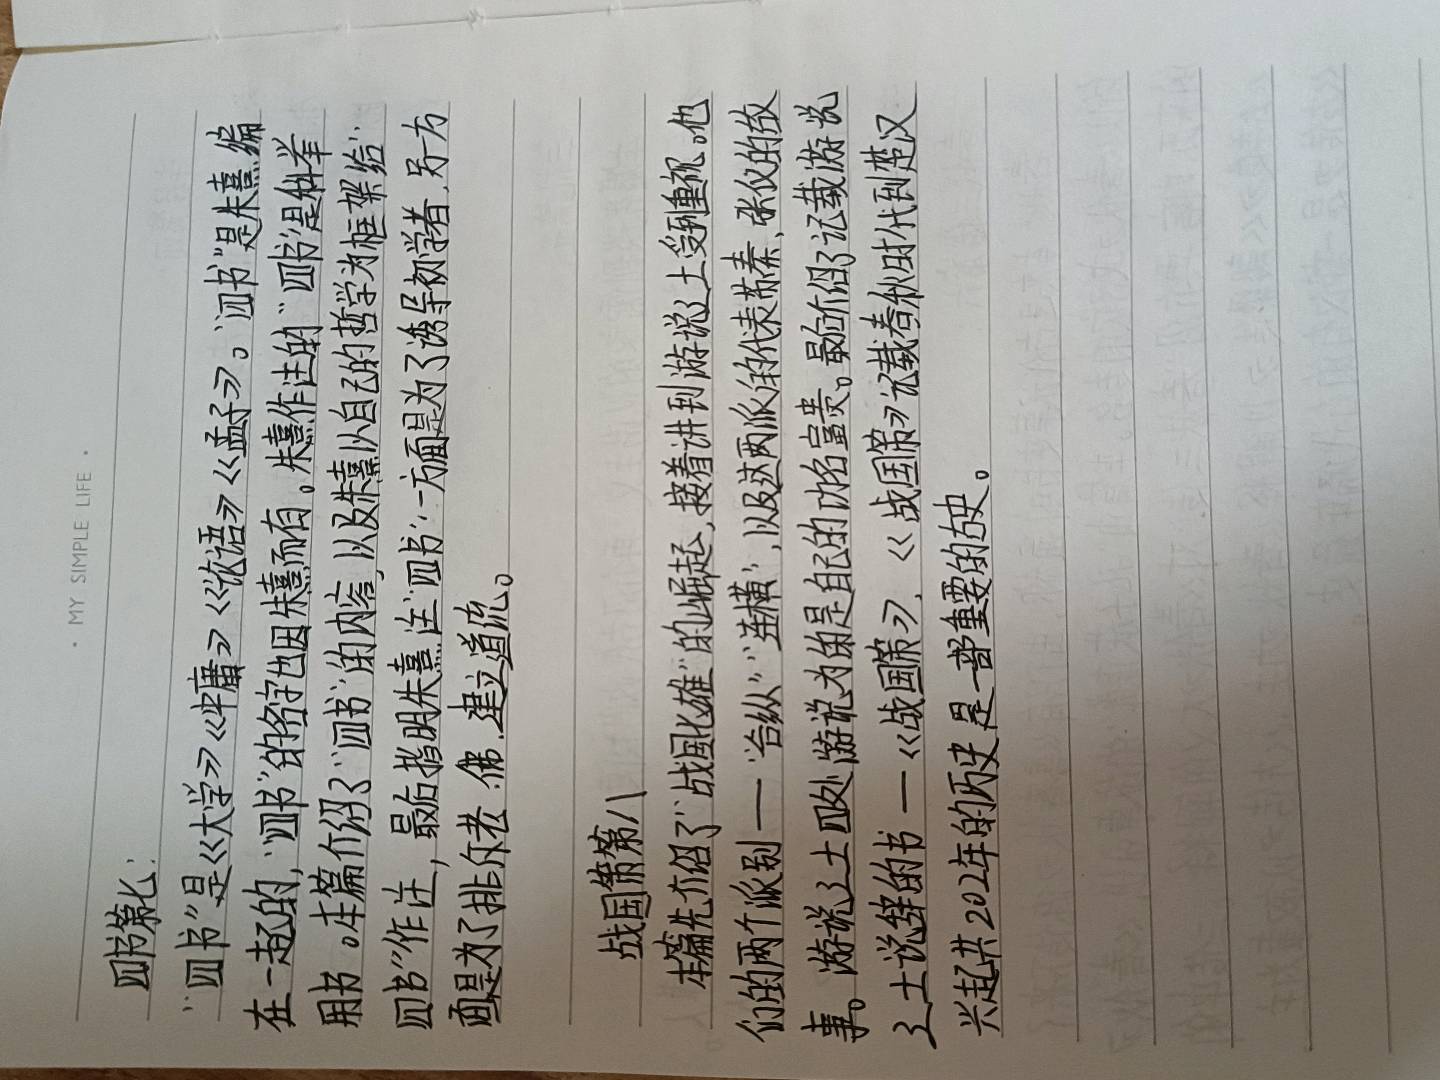 · MY SIMPLE LIFE ·
四书第七
“四书”是《大学》《中庸》《论语》《孟子》。“四书”是朱熹编
在一起的,“四书”的名字也因朱熹而有。朱熹作注的“四书”是科举
用书。本篇介绍了“四书”的内容,以及朱熹以自己的哲学为框架给“
四书”作注,最后指明朱熹注“四书”,一方面是为了诱导初学者,另方
面是为了排斥老、佛,建立道统。
战国策第八
本篇先介绍了“战国七雄”的崛起,接着讲到游说之士受到重视。他
们的两个派别——“合纵”“连横”,以及这两派的代表苏秦、张仪的故
事。游说之士四处游说为的是自己的功名富贵。最后介绍了记载游说
之士说辞的书—《战国策》,《战国策》记载春秋时代到楚汉
兴起共202年的历史是一部重要的古史。